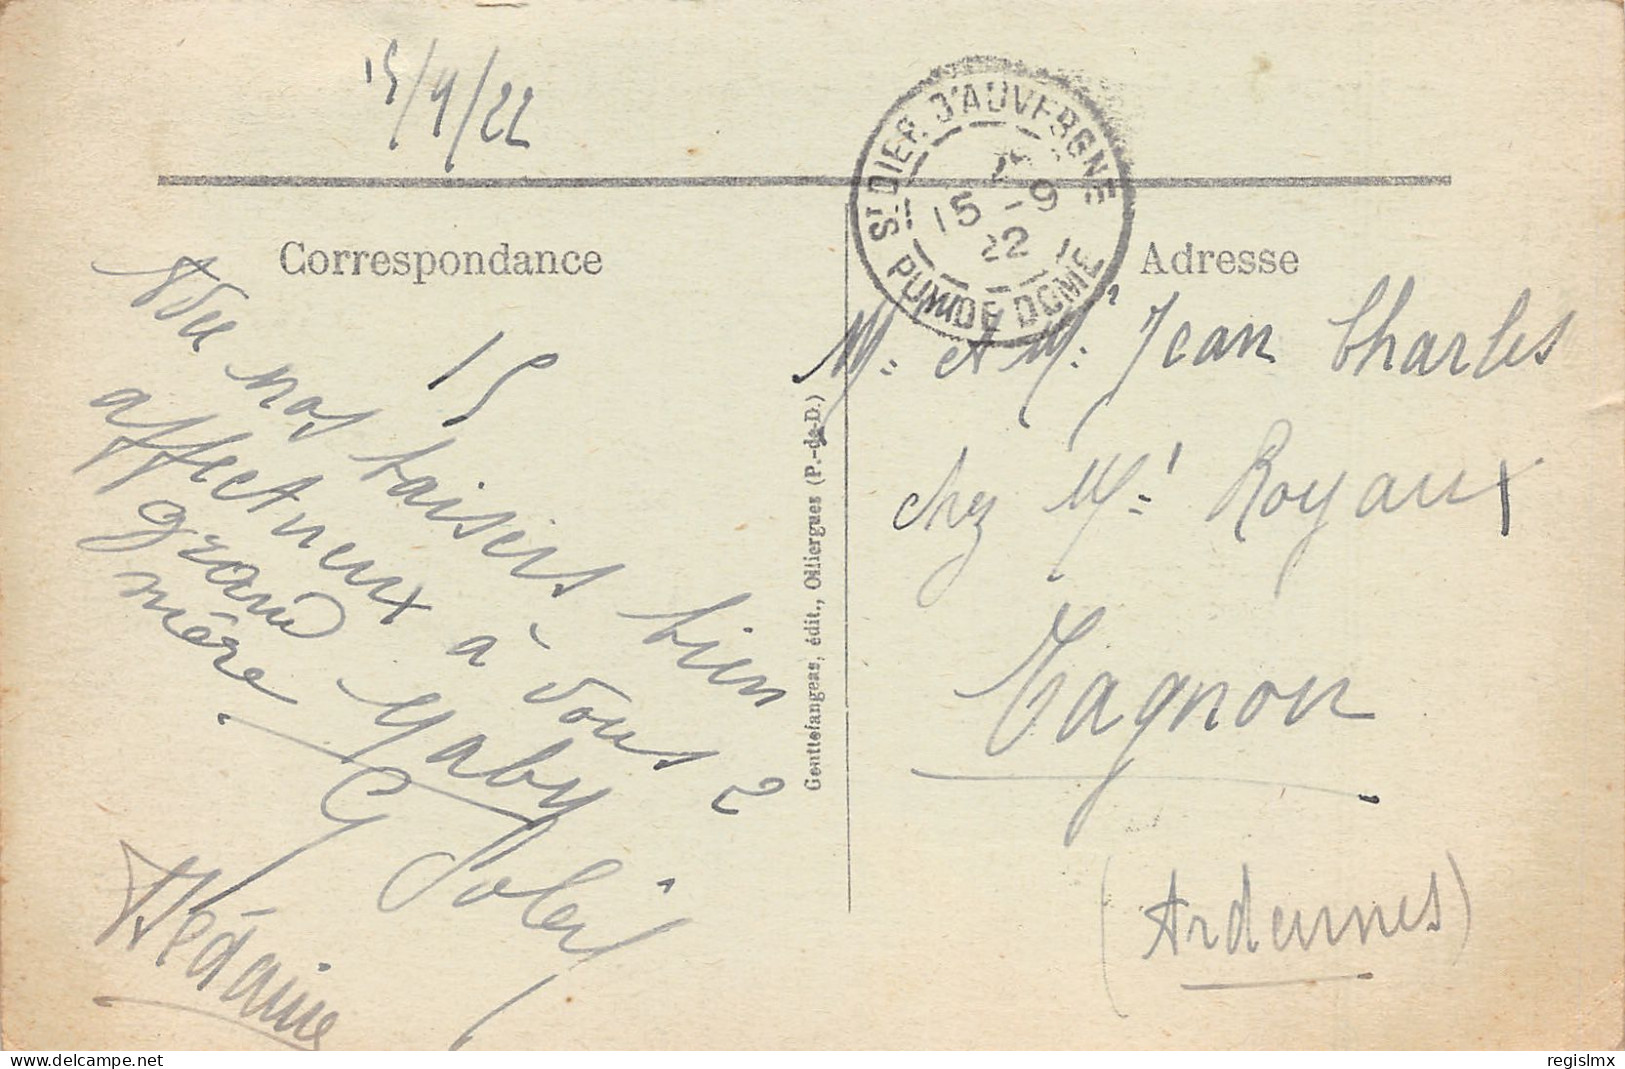 15/9/22
Correspondance
15
nos baisers bien
affectueux à vous 2
grand
mère Gaby
Soleil
Médaine
Gouttefangeas, édit., Olliergues (P.-de-D.)
ST DIER D'AUVERGNE
15 -9
22
PUY DE DOME
Adresse
M. et Me Jean Charles
chez Mr Royaux
Tagnon
(Ardennes)
delcampe.net
regislmx